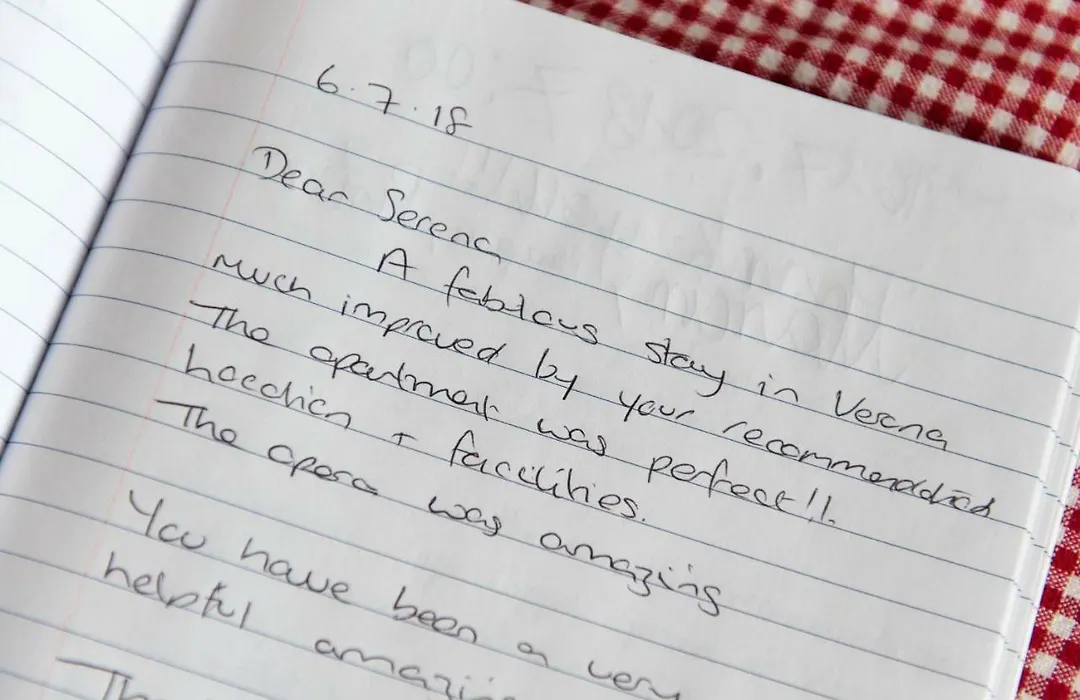 6.7.18
Dear Serena
A fablous stay in Verona
much improved by your recommendation
The apartment was perfect!!.
location + facilities.
The opera was amazing
You have been a very
helpful amazing
The